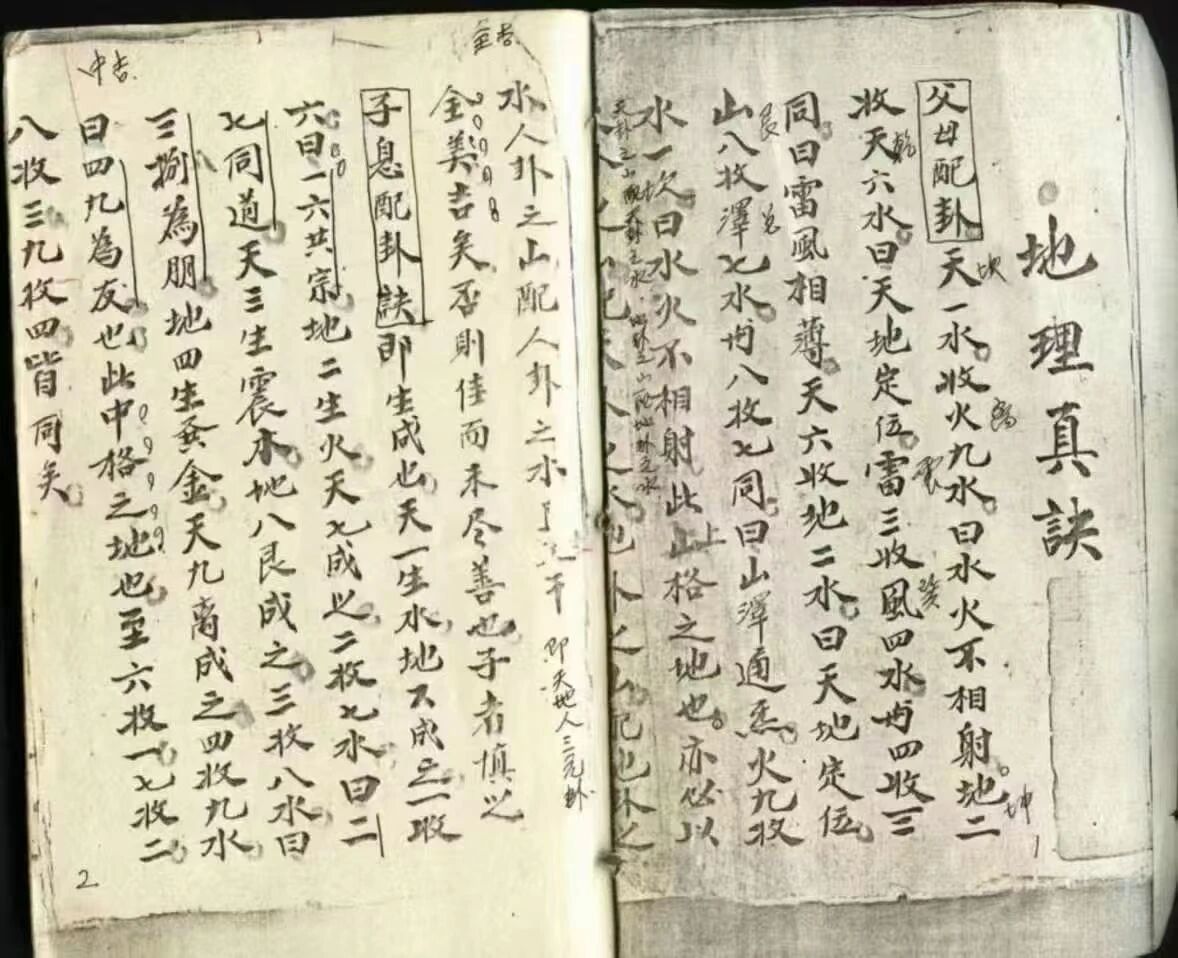 地理真訣
父母配卦天一水收火九水曰水火不相射地二
坎
离
坤
收天六水曰天地定位雷三收風四水毋四收三
乾
震
巽
同曰雷風相薄天六收地二水曰天地定位
山八收澤七水毋八收七同曰山澤通炁火九收
艮
兑
水一次曰水火不相射此山格之地也亦必以
坎
上
天卦之山配天卦之水地卦之山配地卦之水
1
水人卦之山配人卦之水
即天地人三元卦
全吉
全美吉矣否則佳而未尽善也子者慎之
子息配卦訣即生成也天一生水地六成之一收
六曰一六共宗地二生火天七成之二收七水曰二
七同道天三生震木地八艮成之三收八水曰
三捌為朋地四生金天九离成之四收九水
曰四九為友也此中格之地也至六收一七收二
中吉
八收三九收四皆同矣
2